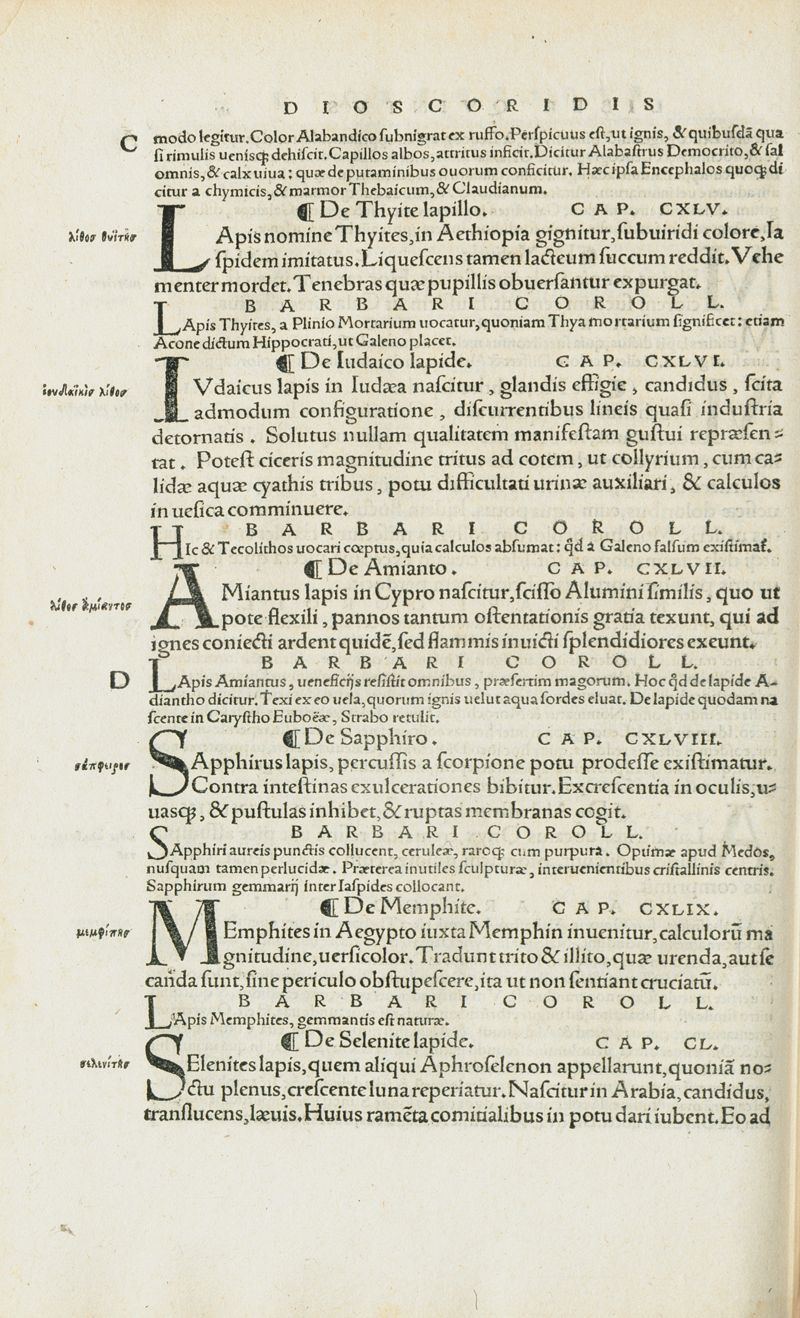 DIOSCORIDIS
C modo legitur. Color Alabandico ſubnigrat ex ruffo. Perſpicuus eſt, ut ignis, & quibuſdã qua
ſi rimulis ueniſq; dehiſcit. Capillos albos, attritus inficit. Dicitur Alabaſtrus Democrito, & ſal
omnis, & calx uiua: quæ de putaminibus ouorum conficitur. Hæc ipſa Encephalos quoq; di
citur a chymicis, & marmor Thebaicum, & Claudianum.
¶ De Thyite lapillo. CAP. CXLV.
λίθοσ θυΐτησ
LApis nomine Thyites, in Aethiopia gignitur, ſubuiridi colore, Ia
ſpidem imitatus. Liqueſcens tamen lacteum ſuccum reddit. Vehe
menter mordet. Tenebras quæ pupillis obuerſantur expurgat.
BARBARI COROLL.
LApis Thyites, a Plinio Mortarium uocatur, quoniam Thya mortarium ſignificet: etiam
Acone dictum Hippocrati, ut Galeno placet.
¶ De Iudaico lapide. CAP. CXLVI.
ἰουδαϊκὸσ λίθοσ
IVdaicus lapis in Iudæa naſcitur, glandis effigie, candidus, ſcita
admodum configuratione, diſcurrentibus lineis quaſi induſtria
detornatis. Solutus nullam qualitatem manifeſtam guſtui repræſen⸗
tat. Poteſt ciceris magnitudine tritus ad cotem, ut collyrium, cum ca⸗
lidæ aquæ cyathis tribus, potu difficultati urinæ auxiliari, & calculos
in ueſica comminuere.
BARBARI COROLL.
HIc & Tecolithos uocari cœptus, quia calculos abſumat: qđ a Galeno falſum exiſtimat̃.
¶ De Amianto. CAP. CXLVII.
λίθοσ ἀμίαντοσ
AMiantus lapis in Cypro naſcitur, ſciſſo Alumini ſimilis, quo ut
pote flexili, pannos tantum oſtentationis gratia texunt, qui ad
ignes coniecti ardent quidẽ, ſed flammis inuicti ſplendidiores exeunt.
BARBARI COROLL.
D LApis Amiantus, ueneficijs reſiſtit omnibus, præſertim magorum. Hoc qđ de lapide A⸗
diantho dicitur. Texi ex eo uela, quorum ignis uelut aqua ſordes eluat. De lapide quodam na
ſcente in Caryſtho Eubœæ, Strabo retulit.
¶ De Sapphiro. CAP. CXLVIII.
σάπφειροσ
SApphirus lapis, percuſſis a ſcorpione potu prodeſſe exiſtimatur.
Contra inteſtinas exulcerationes bibitur. Excreſcentia in oculis, u⸗
uasq;, & puſtulas inhibet, & ruptas membranas cogit.
BARBARI COROLL.
SApphiri aureis punctis collucent, ceruleæ, raroq; cum purpura. Optimæ apud Medos,
nuſquam tamen perlucidæ. Præterea inutiles ſculpturæ, interuenientibus criſtallinis centris.
Sapphirum gemmarij inter Iaſpides collocant.
¶ De Memphite. CAP. CXLIX.
μεμφίτησ
MEmphites in Aegypto iuxta Memphin inuenitur, calculorũ ma
gnitudine, uerſicolor. Tradunt trito & illito, quæ urenda, aut ſe
canda ſunt, ſine periculo obſtupeſcere, ita ut non ſentiant cruciatũ.
BARBARI COROLL.
LApis Memphites, gemmantis eſt naturæ.
¶ De Selenite lapide. CAP. CL.
σεληνίτησ
SElenites lapis, quem aliqui Aphroſelenon appellarunt, quoniã no⸗
ctu plenus, creſcente luna reperiatur. Naſcitur in Arabia, candidus,
tranſlucens, læuis. Huius ramẽta comitialibus in potu dari iubent. Eo ad